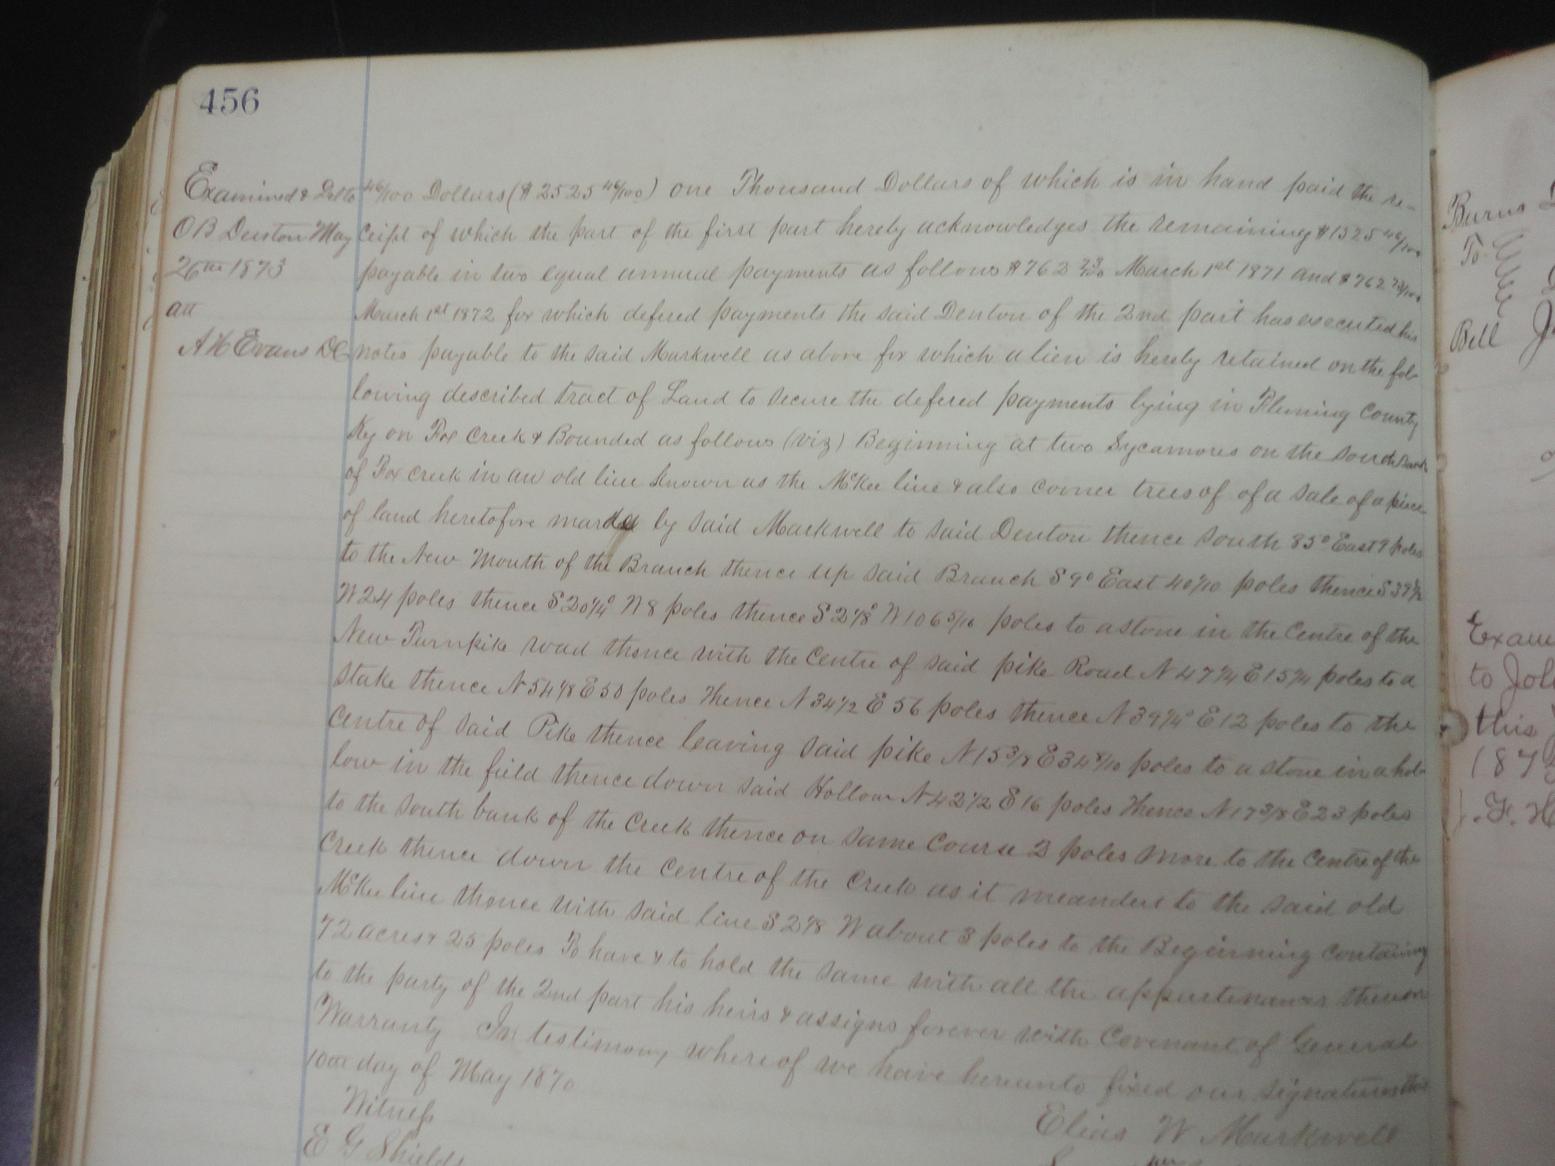 456
Examined & Del to
O B Denton May
26th 1873
att
A H Evans DC
46/100 Dollars ($2525 46/100) one Thousand Dollars of which is in hand paid the re-
ceipt of which the part of the first part hereby acknowledges the remaining $1525 46/100
payable in two equal annual payments as follows $762 73/100 March 1st 1871 and $762 73/100
March 1st 1872 for which defered payments the said Denton of the 2nd part has executed his
notes payable to the said Markwell as above for which a lien is hereby retained on the fol-
lowing described tract of Land to secure the defered payments lying in Fleming County
Ky on Fox Creek & Bounded as follows (viz) Beginning at two Sycamores on the south bank
of Fox creek in an old line known as the McKee line & also corner trees of of a sale of a piece
of land heretofore made by said Markwell to said Denton thence South 85° East 9 poles
to the New Mouth of the Branch thence up said Branch S 9° East 40/10 poles thence S 39 1/2
W 24 poles thence S 20 1/4° W 8 poles thence S 2 1/8° W 106 5/10 poles to a stone in the Centre of the
New Turnpike road thence with the Centre of said pike Road N 47 3/4 E 15 3/4 poles to a
Stake thence N 54 1/8 E 50 poles Thence N 34 1/2 E 56 poles thence N 39 3/4° E 12 poles to the
Centre of said Pike thence leaving said pike N 15 3/8 E 34 8/10 poles to a stone in a hol-
low in the field thence down said Hollow N 42 1/2 E 16 poles Thence N 17 3/8 E 23 poles
to the south bank of the Creek thence on same Course 2 poles more to the Centre of the
Creek thence down the Centre of the Creek as it meanders to the said old
McKee line thence with said line S 2 1/8 W about 3 poles to the Beginning containing
72 acres & 25 poles To have & to hold the same with all the appurtenances thereon
to the party of the 2nd part his heirs & assigns forever with Covenant of General
Warranty In testimony whereof we have hereunto fixed our signatures this
10th day of May 1870
Witness
E G Shields
Elias W Markwell
Burns
To
Bell
Exam
to Joh
this
187
J. F. H